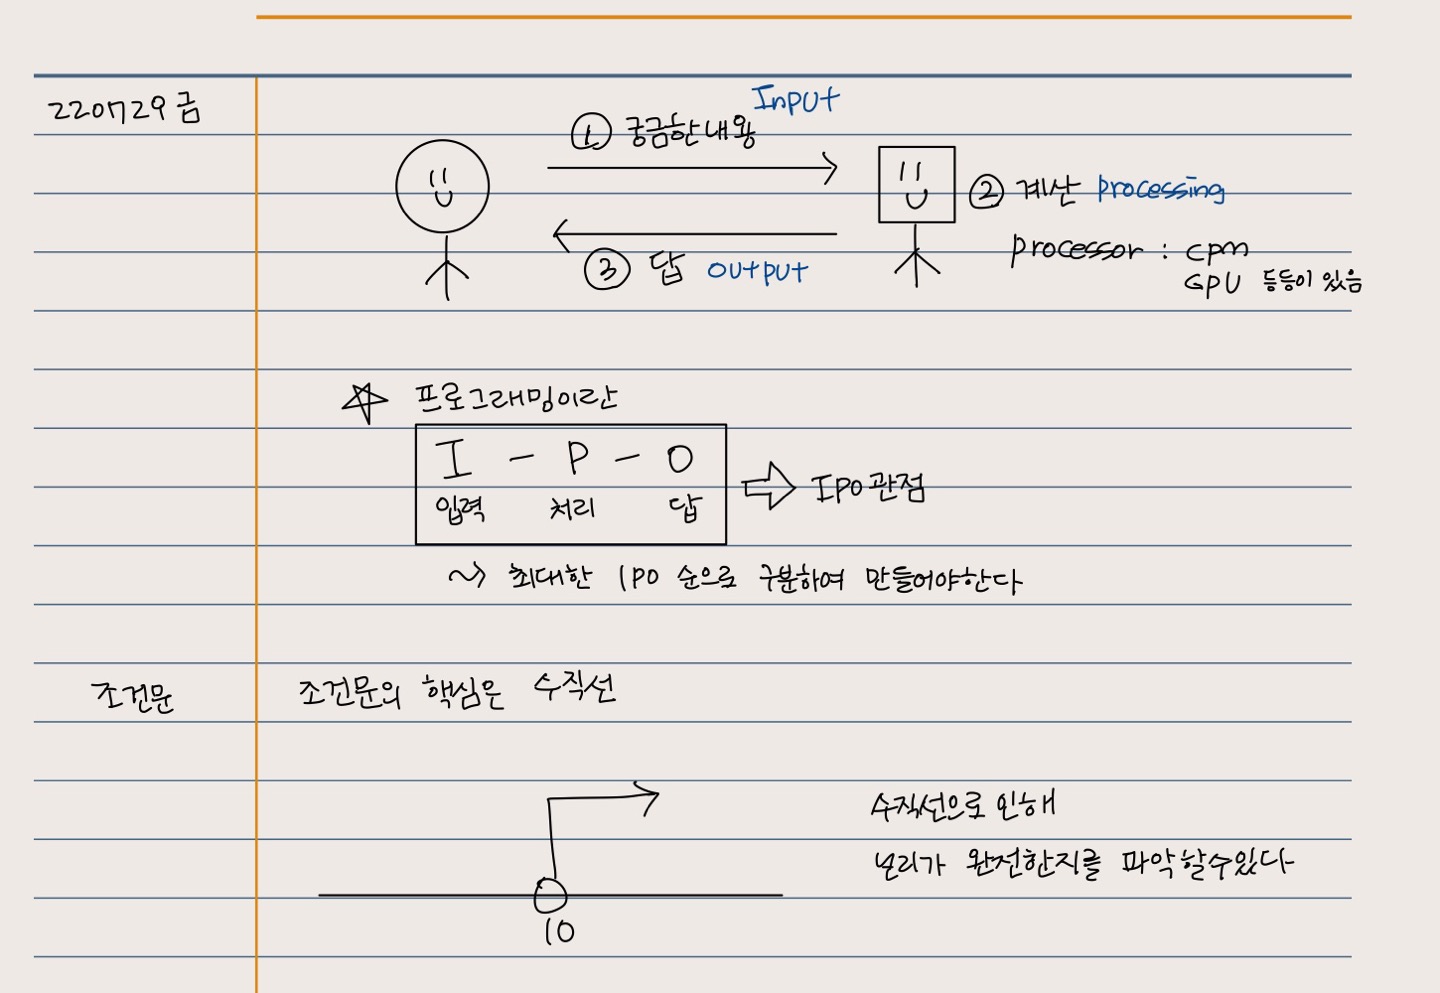 220729금
Input
① 궁금한내용
② 계산 processing
processor : cpm
GPU 등등이 있음
③ 답 output
☆ 프로그래밍이란
I - P - O
입력 처리 답
⇨ IPO관점
~> 최대한 IPO 순으로 구분하여 만들어야한다
조건문
조건문의 핵심은 수직선
수직선으로 인해
논리가 완전한지를 파악할수있다
10